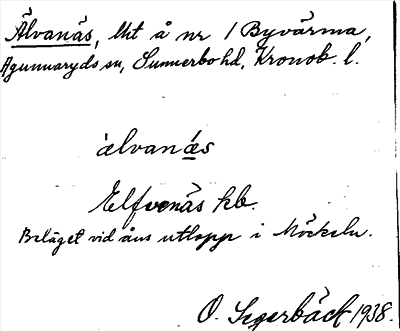 Älvanäs, lht å nr 1 Byvärma,
Agunnaryds sn, Sunnerbo hd, Kronob. l.
àlvanä́s
Elfvenäs kb.
Beläget vid åns utlopp i Möckeln.
O. Segerbäck 1938.